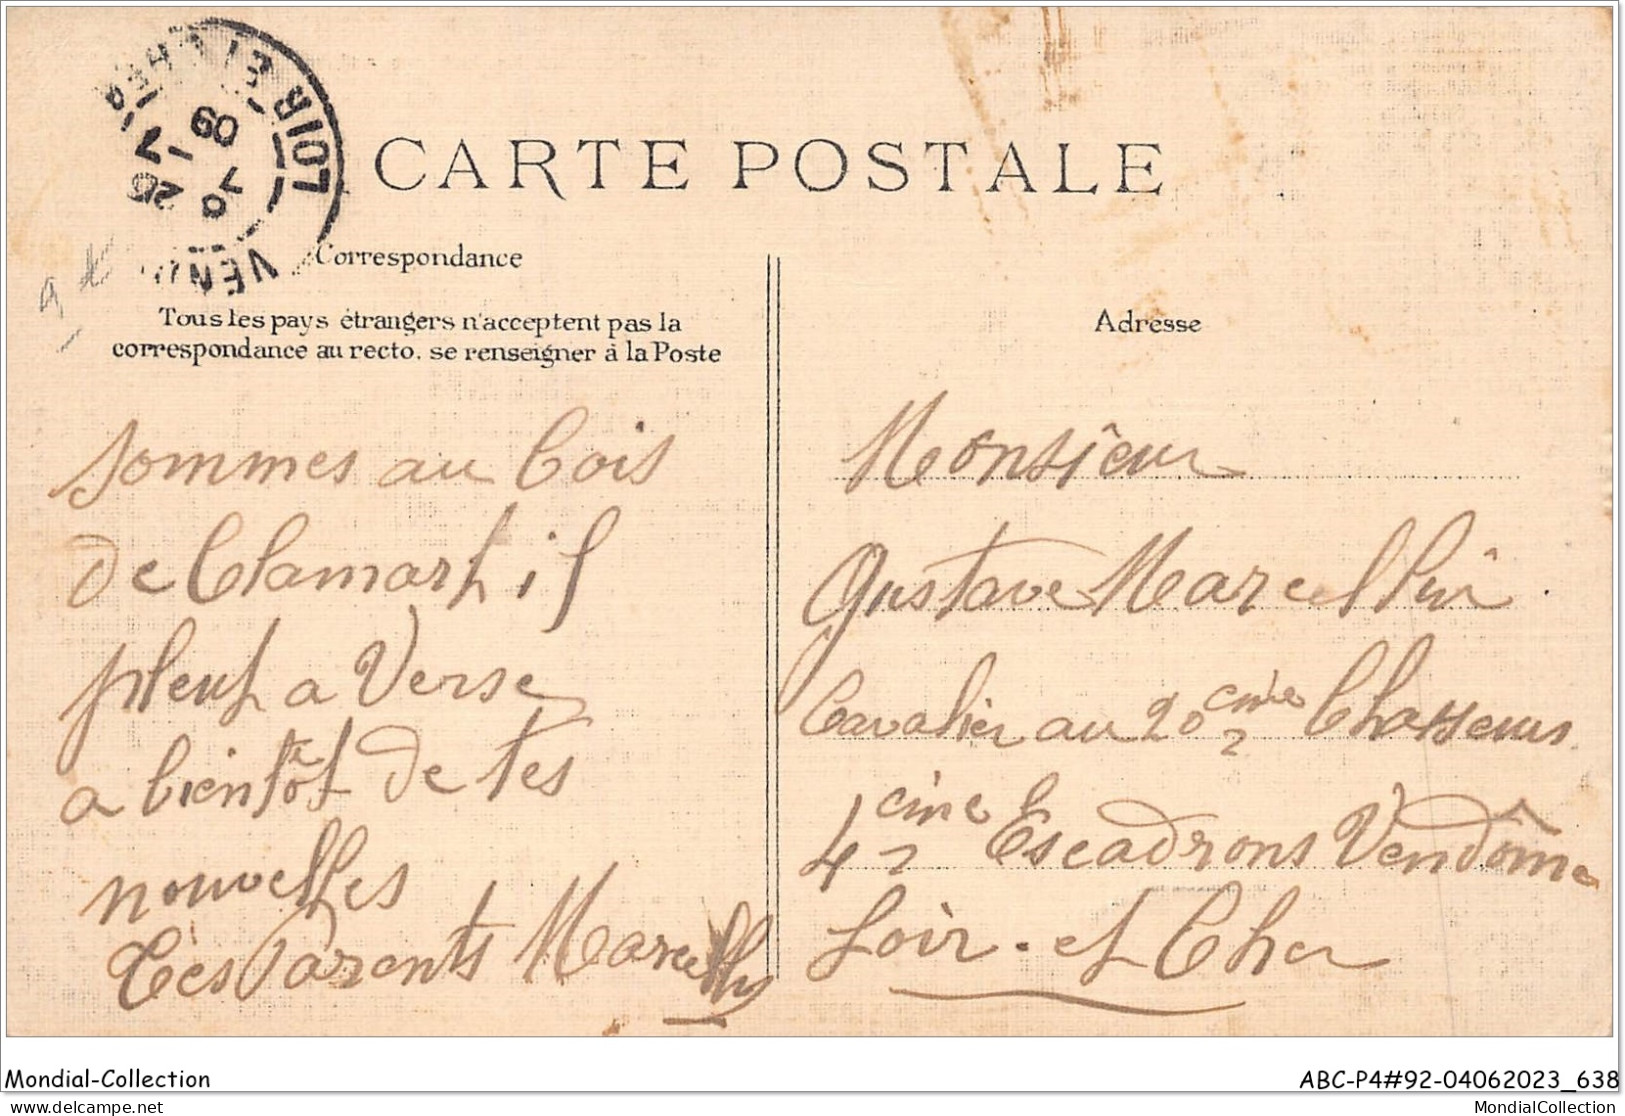 LOIR ET CHER
VEN
26 -7
09
CARTE POSTALE
Correspondance
Tous les pays étrangers n'acceptent pas la
correspondance au recto, se renseigner à la Poste
Adresse
sommes au bois
de Clamart il
pleut a Verse
a bientôt de tes
nouvelles
Tes Parents
Monsieur
Gustave Marcellin
Cavalier au 20 ème Chasseurs
4 ème Escadrons Vendôme
Loir-et Cher
Mondial-Collection
ABC-P4#92-04062023_638
www.delcampe.net
MondialCollection